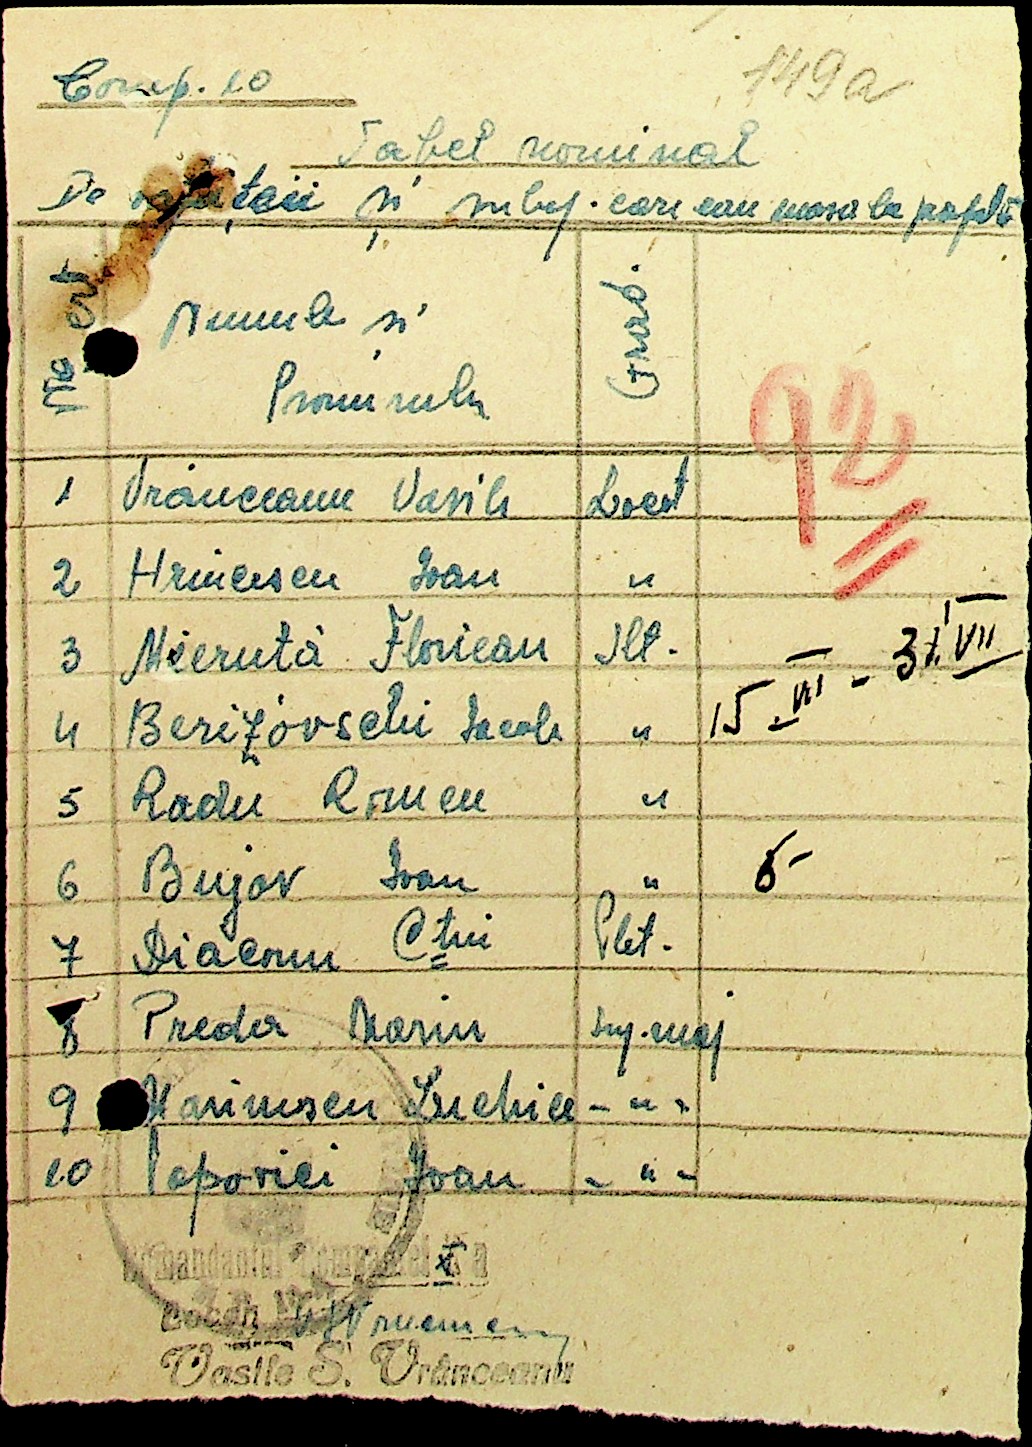 Comp. 10
149a
Tabel nominal
De și subof. cari eau masa la popotă
No Crt
Numele și
Pronumele
Grad.
92
1 Vrânceanu Vasile Locot
2 Ioan "
3 Mieruță Floriean Slt.
15.VII - 31.VII
4 Berizovschi Iacob "
5 Radu Romeu "
6 Bujor Ioan "
7 Diaconu Ctin Plet.
8 Preda Marin
9 Marinescu Luchice - " -
10 Popovici Ioan - " -
Comandantul Companiei X a
Locot.
Vasile S. Vrânceanu